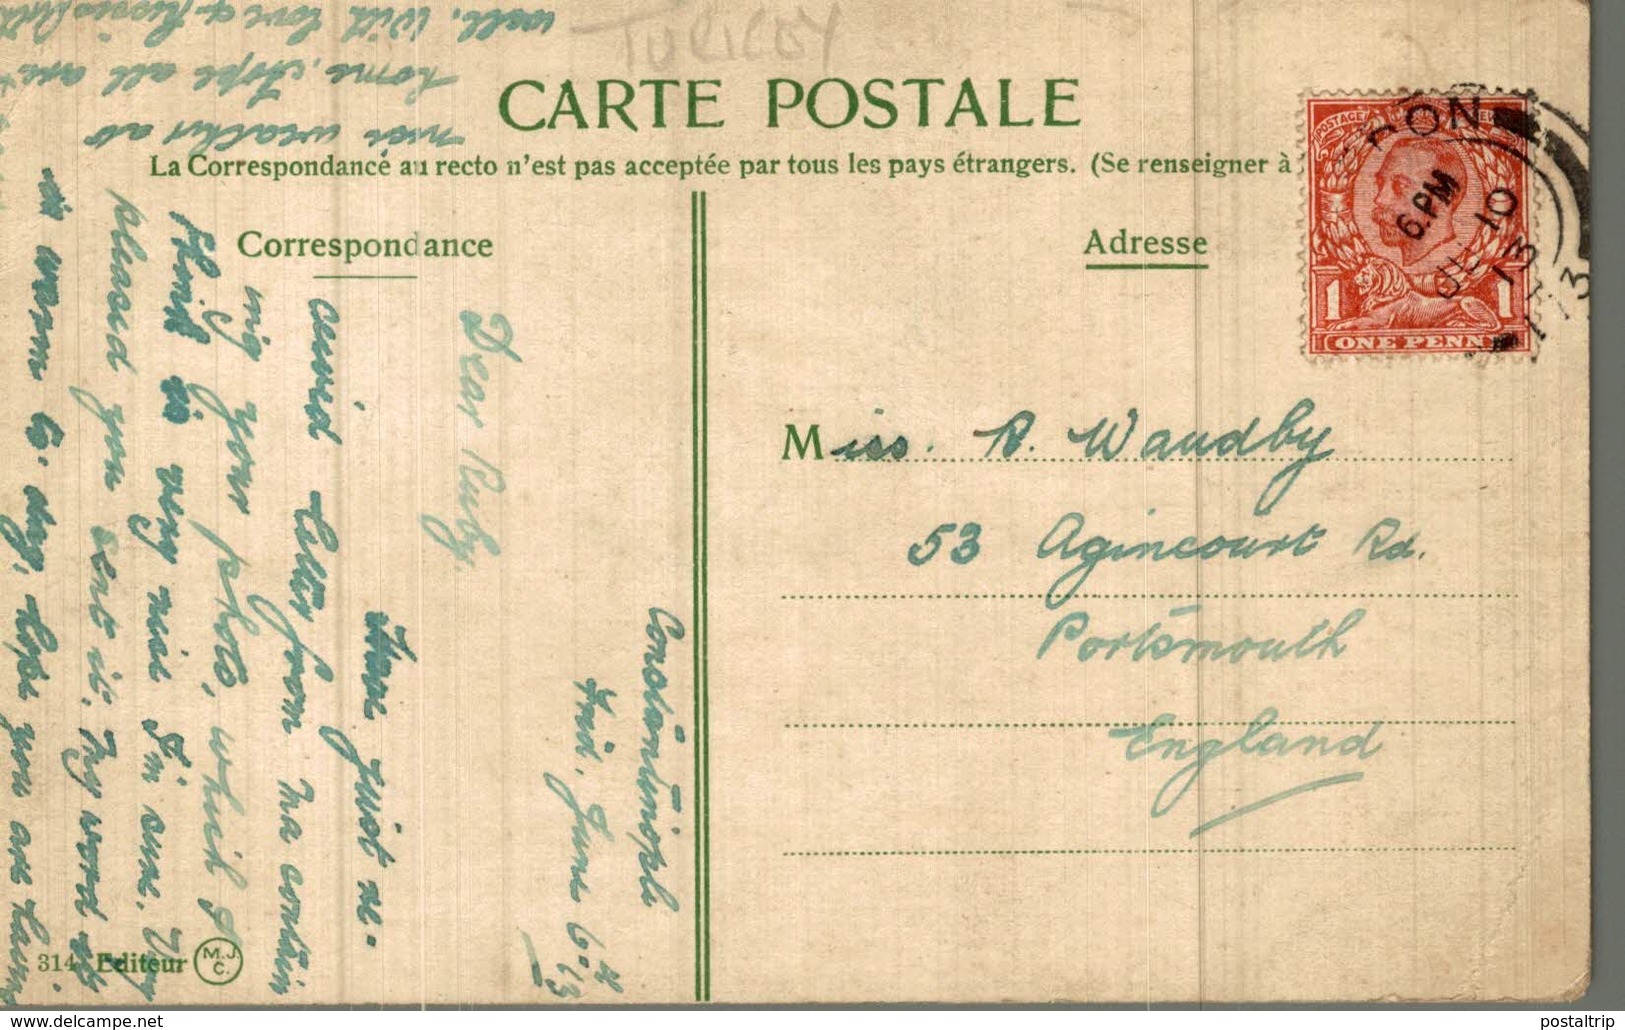 TURKEY
CARTE POSTALE
La Correspondance au recto n'est pas acceptée par tous les pays étrangers. (Se renseigner à
Correspondance
Adresse
Constantinople
Frid. June 6th 13
Dear Ruby,
Have just re-
ceived letter from ma contain
ing your photo, which I
think is very nice I'm sure. Very
pleased you sent it. My word it
is warm to. day, hope you are having
nice weather at
home. Hope all are
well. With love & kisses
Miss. R. Waudby
53 Agincourt Rd.
Portsmouth
England
POSTAGE
1 1
ONE PENNY
DON
6. PM
JUL 10
13
314 Editeur M.J.C.
delcampe.net
postaltrip